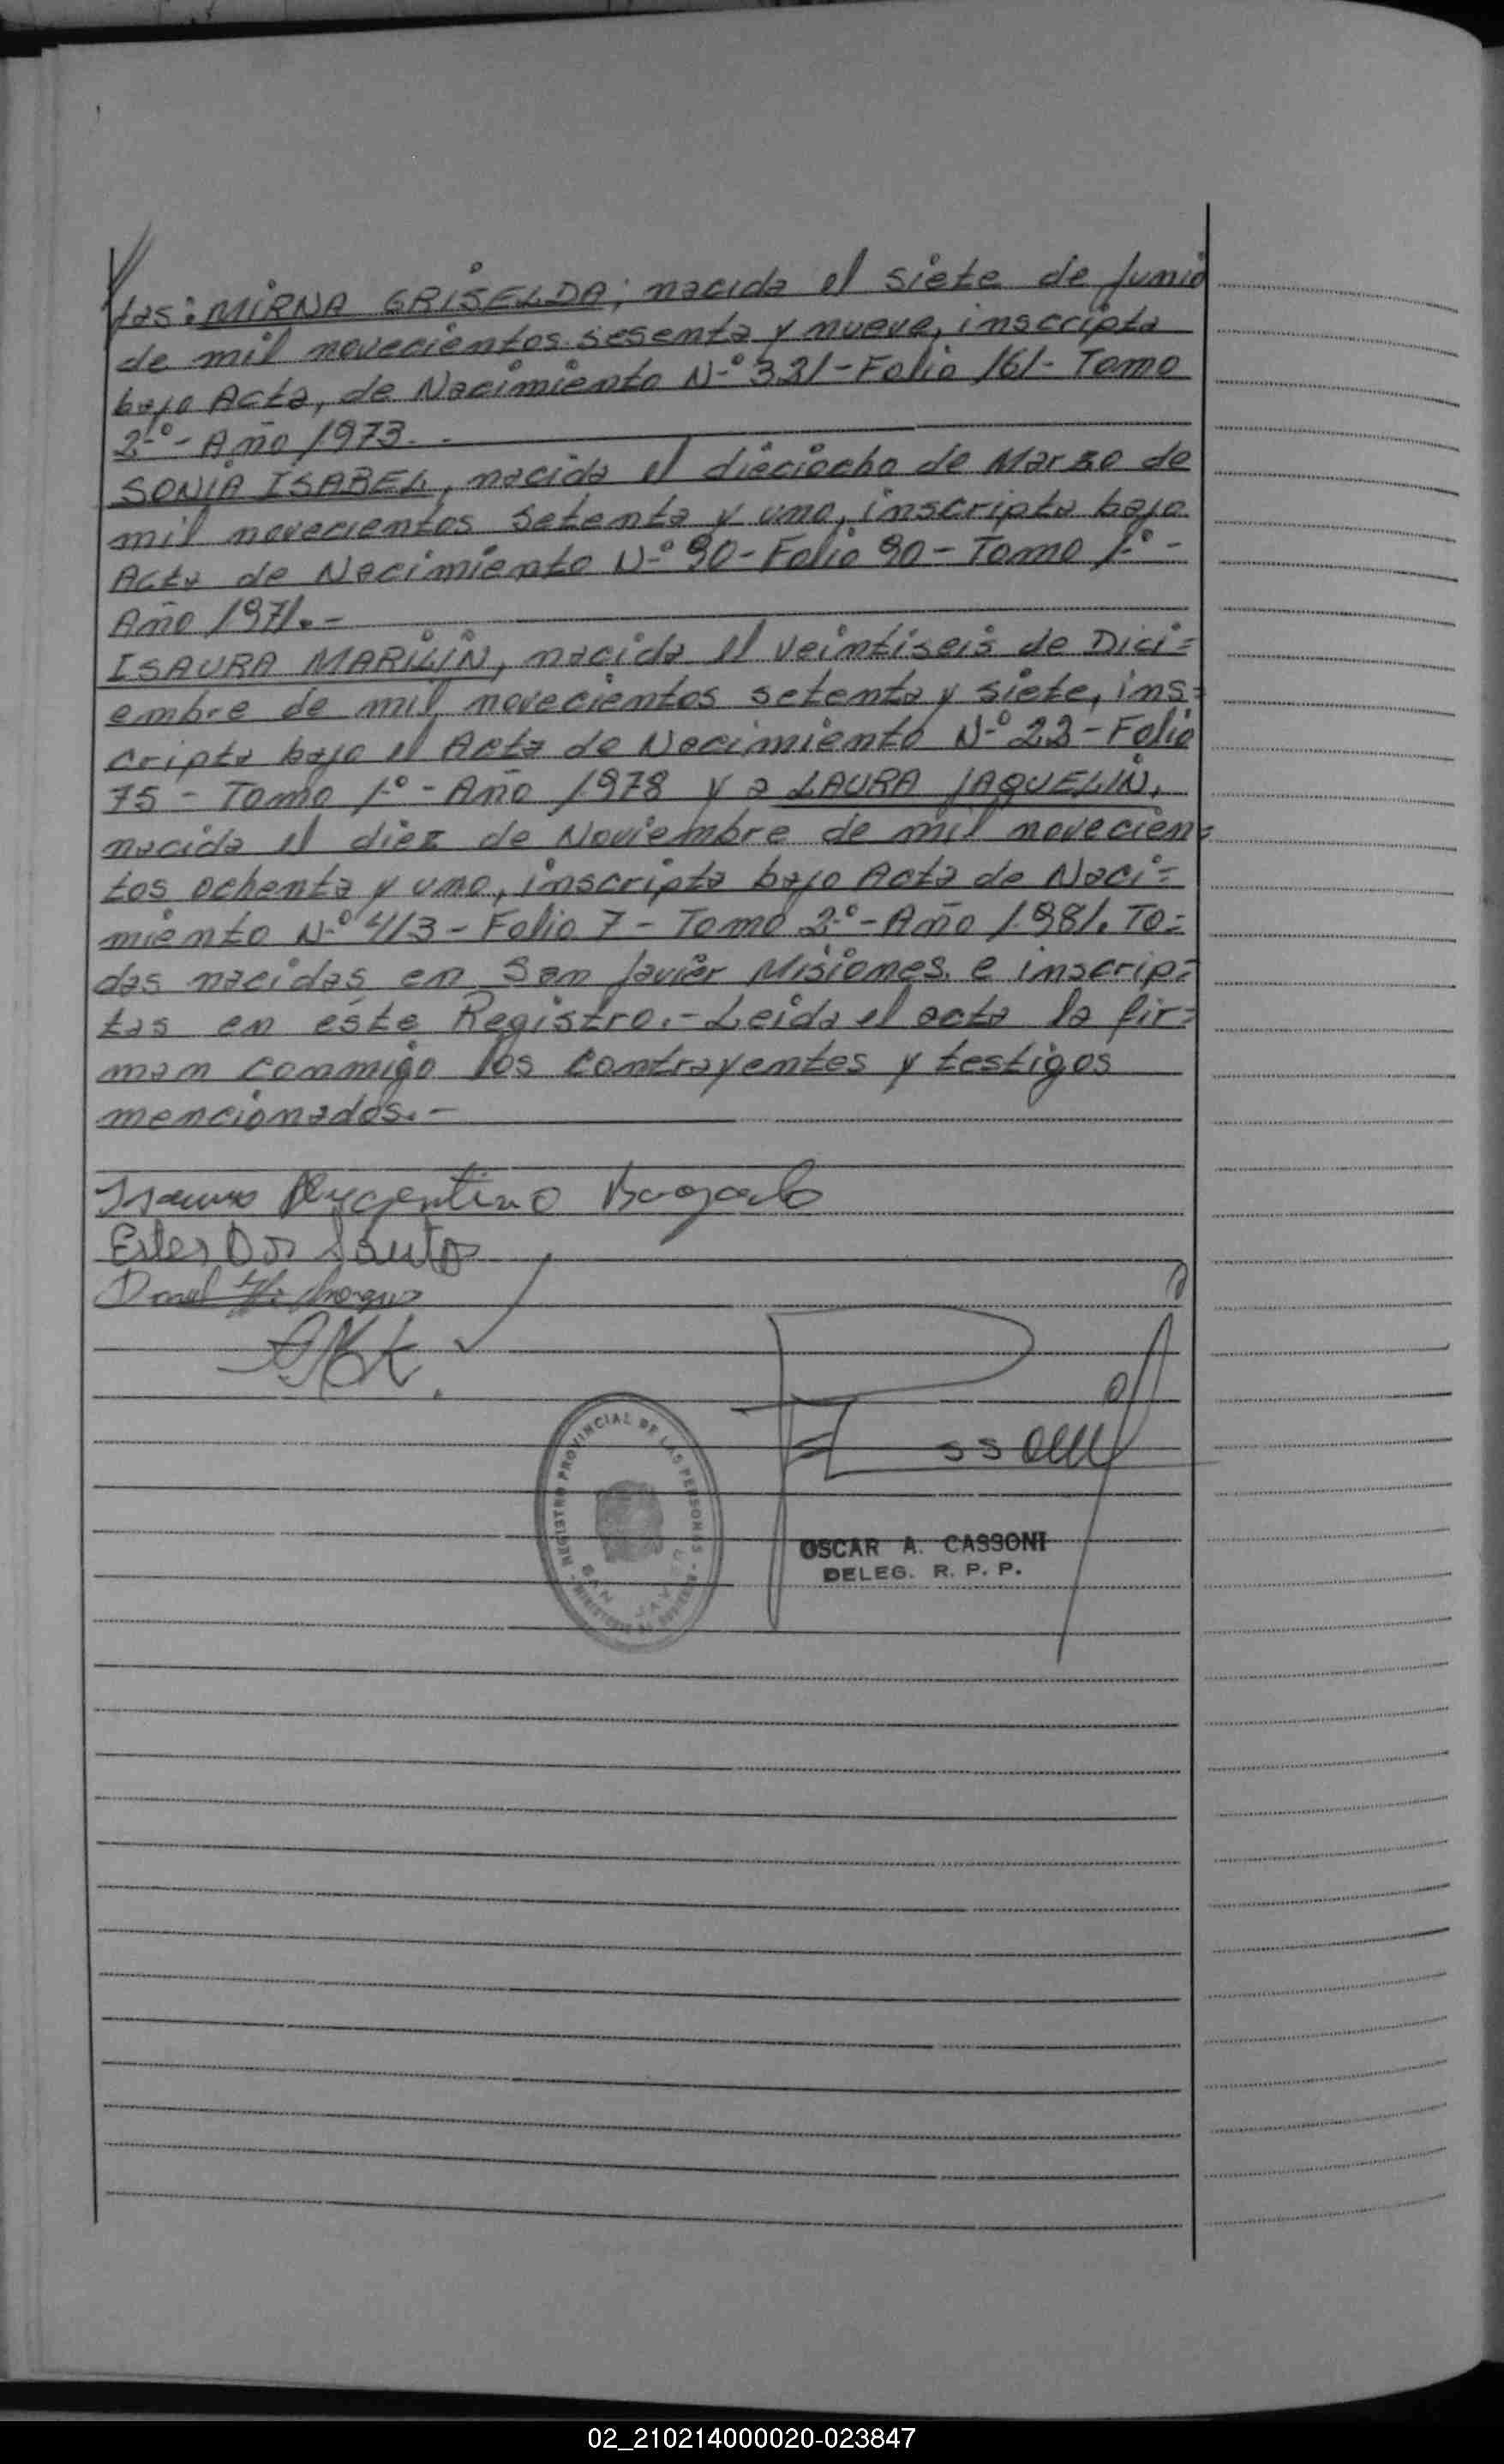 tas: MIRNA GRISELDA; nacida el siete de Junio
de mil novecientos sesenta y nueve, inscripta
bajo Acta, de Nacimiento N-º 321-Folio 161- Tomo
2-º- Año 1973.-
SONIA ISABEL, nacida el dieciocho de Marzo de
mil novecientos setenta y uno, inscripta bajo
Acta de Nacimiento N-º 90-Folio 90-Tomo 1-º-
Año 1971.-
ISAURA MARILIN, nacida el veintiseis de Dici=
embre de mil novecientos setenta y siete, ins=
cripta bajo el Acta de Nacimiento N-º 22-Folio
75- Tomo 1-º-Año 1978 y a LAURA JAQUELIN,
nacida el diez de Noviembre de mil novecien=
tos ochenta y uno, inscripta bajo Acta de Naci=
miento N-º 413-Folio 7-Tomo 2-º-Año 1981. To=
das nacidas en San Javier Misiones e inscrip=
tas en éste Registro.-Leida el acta la fir=
man conmigo los contrayentes y testigos
mencionados.-
Isauro Argentino
Ester Dos Santos
REGISTRO PROVINCIAL DE LAS PERSONAS -
SAN JAVIER
OSCAR A. CASSONI
DELEG. R. P. P.
02_210214000020-023847